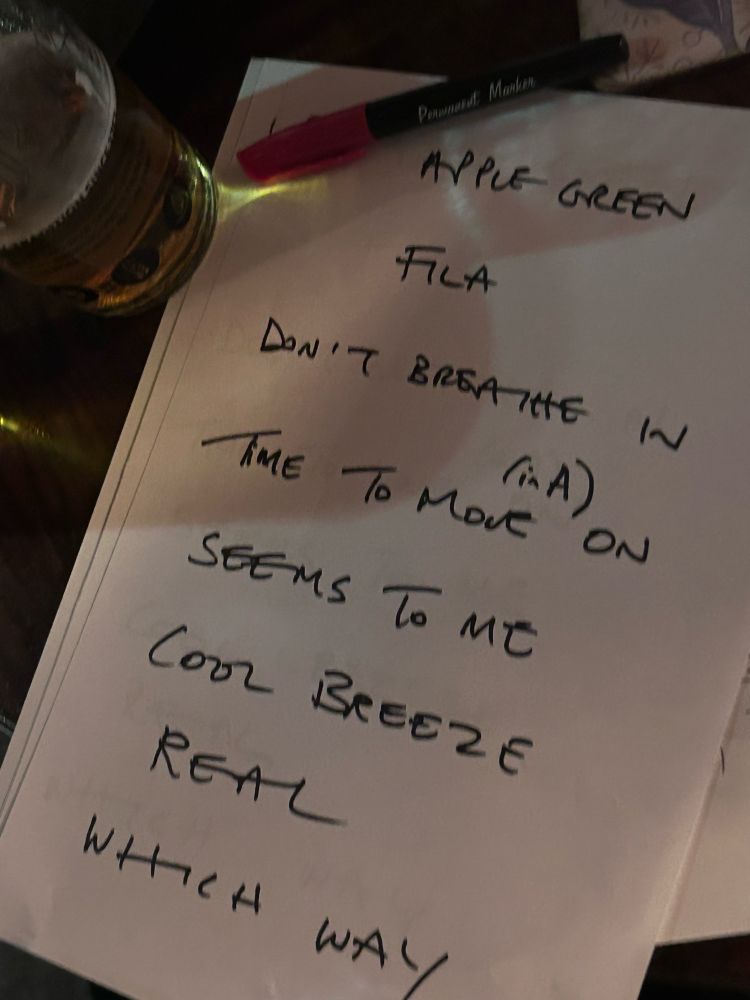 Permanent Marker
APPLE GREEN
FILA
DON'T BREATHE IN
TIME TO MOVE (in A) ON
SEEMS TO ME
COOL BREEZE
REAL
WHICH WAY